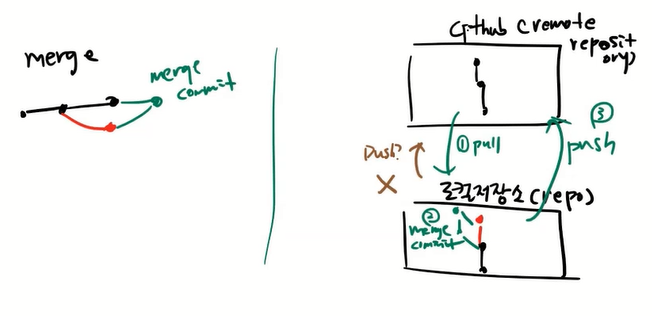 merge
merge
commit
Github (remote
repposit
ory)
push?
①pull
③
push
로컬저장소(repo)
②
merge
commit